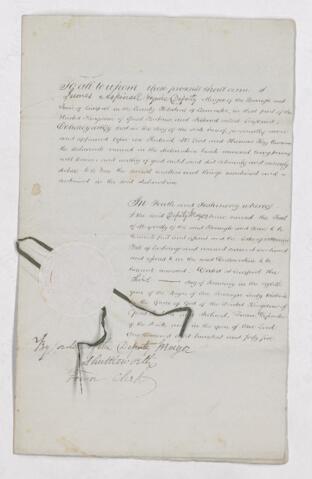 To all to whom these presents shall come I
James Aspinall Esquire Deputy Mayor of the Borough and
Town of Liverpool in the County Palatine of Lancaster in that part of the
United Kingdom of Great Britain and Ireland called England
Do hereby certify that on the day of the date hereof personally came
and appeared before me Richard and Thomas
the declarants named in the declaration hereunto annexed being persons
well known and worthy of good credit and did solemnly and sincerely
declare to be true the several matters and things mentioned and
contained in the said declaration
In Faith and Testimony whereof
I the said Deputy Mayor have caused the Seal
of Mayoralty of the said Borough and Town to be
hereunto put and affixed and the
of and annexed
and referred to in the said Declaration to be
hereunto annexed. Dated in Liverpool the
third day of January in the eighth
year of the Reign of Our Sovereign Lady Victoria
by the Grace of God of the United Kingdom of
Great Ireland, Queen Defender
of the Faith and in the year of Our Lord
One thousand eight hundred and forty five
By order of the Deputy Mayor
Shuttleworth
Town Clerk